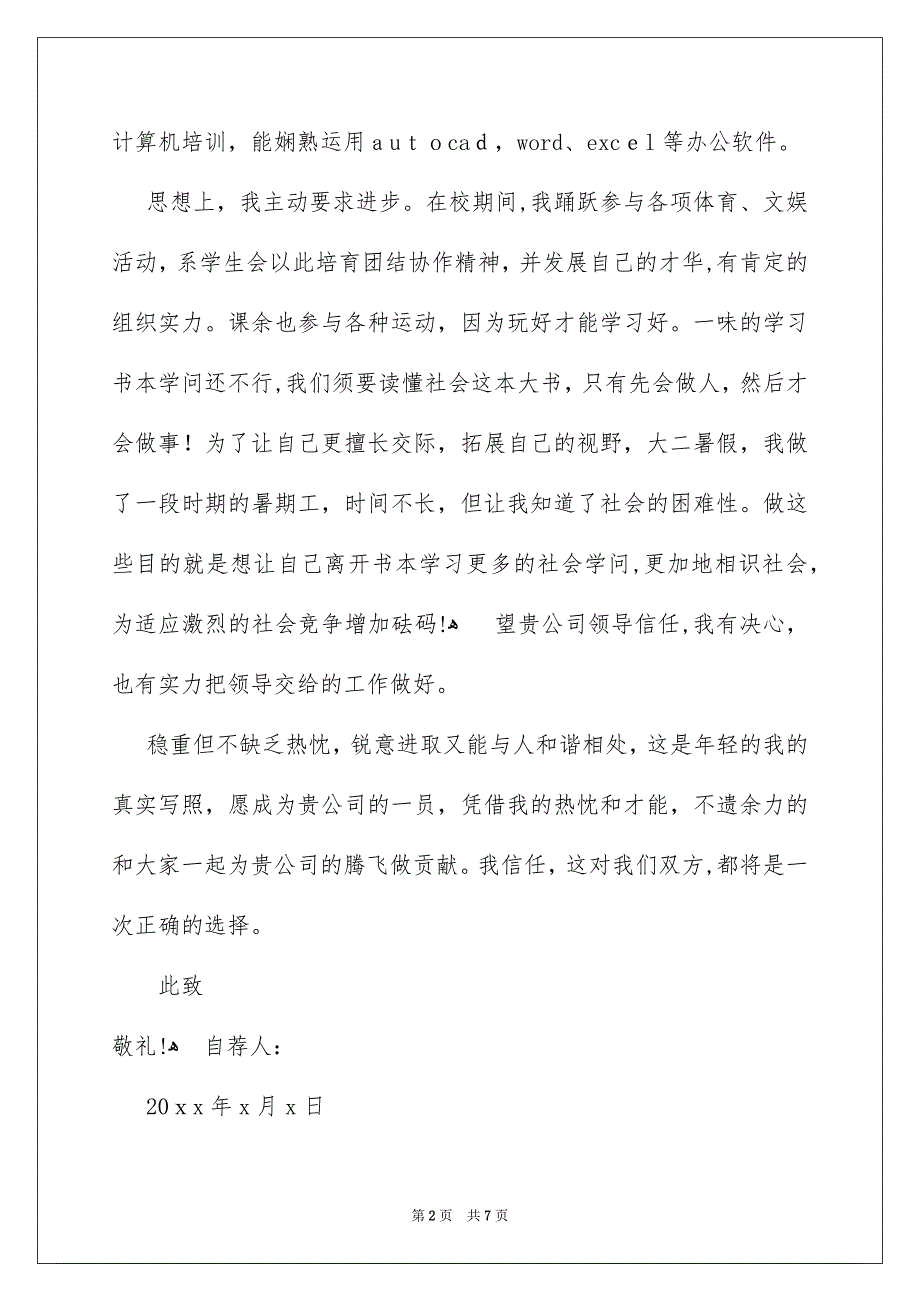 计算机培训，能娴熟运用autocad，word、excel等办公软件。
思想上，我主动要求进步。在校期间,我踊跃参与各项体育、文娱
活动，系学生会以此培育团结协作精神，并发展自己的才华,有肯定的
组织实力。课余也参与各种运动，因为玩好才能学习好。一味的学习
书本学问还不行,我们须要读懂社会这本大书，只有先会做人，然后才
会做事！为了让自己更擅长交际，拓展自己的视野，大二暑假，我做
了一段时期的暑期工，时间不长，但让我知道了社会的困难性。做这
些目的就是想让自己离开书本学习更多的社会学问,更加地相识社会,
为适应激烈的社会竞争增加砝码!ﻫ 望贵公司领导信任,我有决心，
也有实力把领导交给的工作做好。
稳重但不缺乏热忱，锐意进取又能与人和谐相处，这是年轻的我的
真实写照，愿成为贵公司的一员，凭借我的热忱和才能，不遗余力的
和大家一起为贵公司的腾飞做贡献。我信任，这对我们双方,都将是一
次正确的选择。
此致
敬礼!ﻫ 自荐人：
20xx年x月x日
第2页 共7页